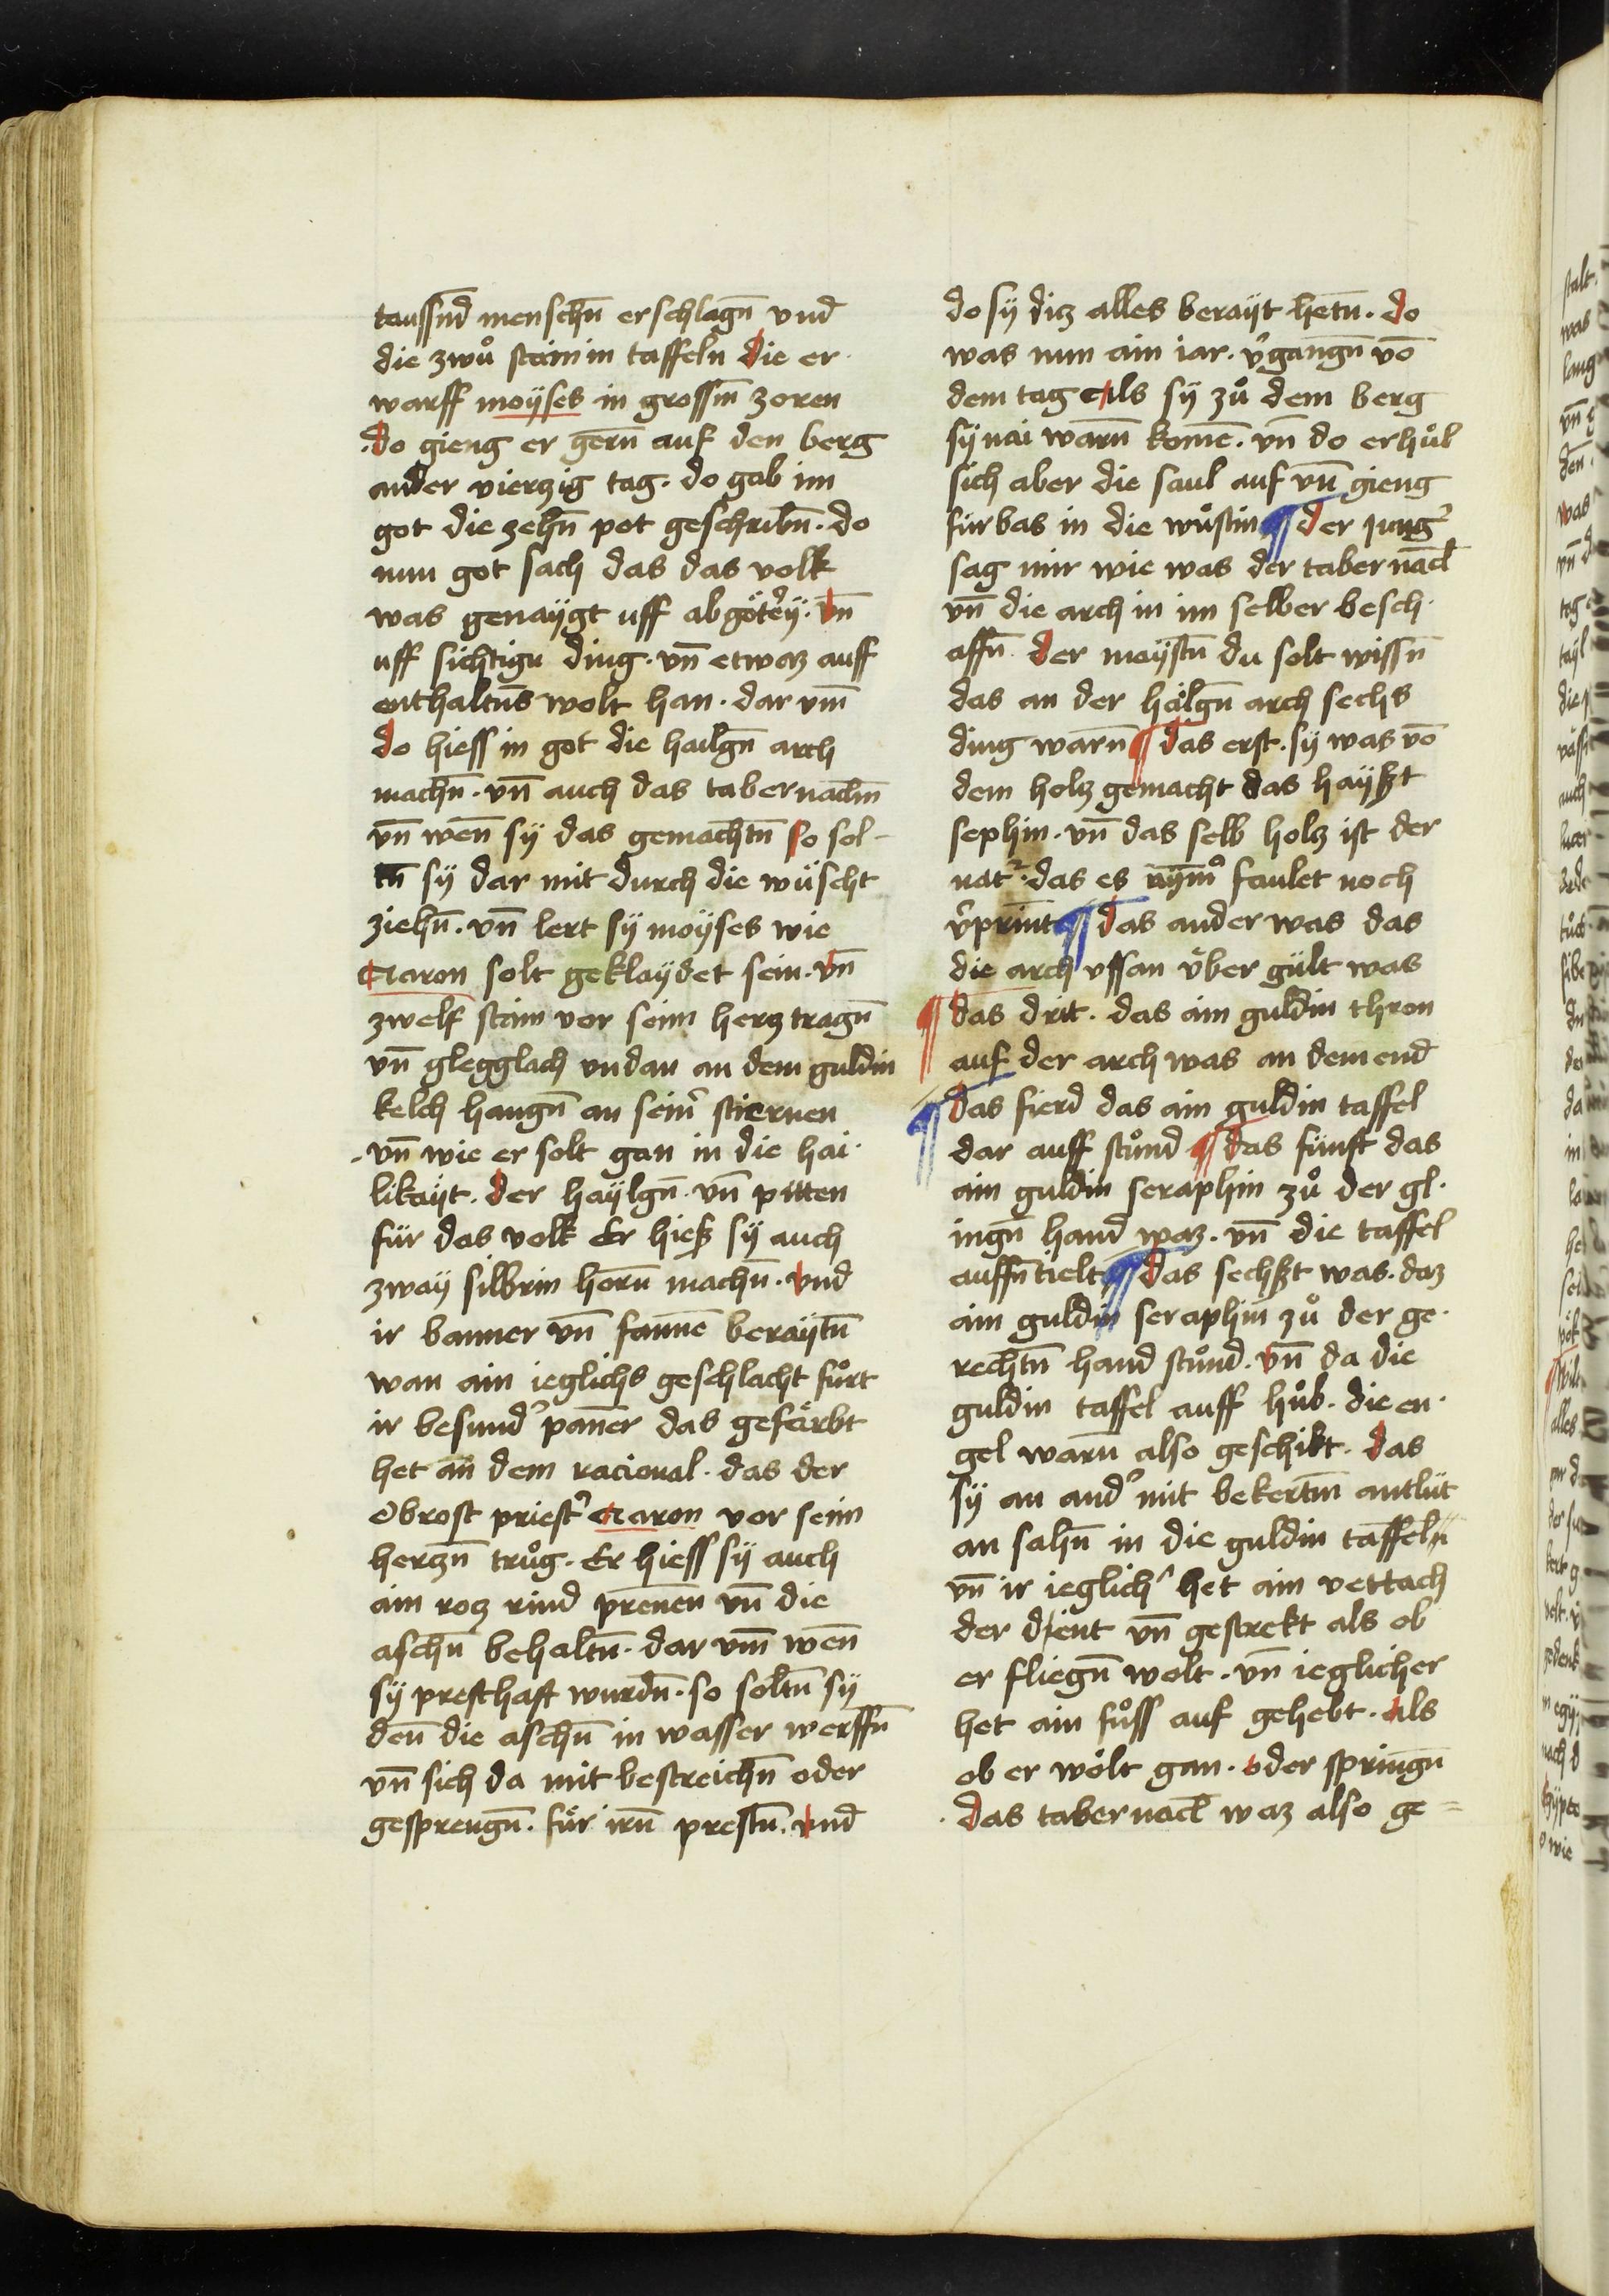 taussn̄d menschn̄ erschlagn̄ vnd
die zwů stainin taffeln die er
warff moÿses in grossm̄ zoren
do gieng er gern̄ auf den berg
ander vierzig tag · do gab im
got die zehn̄ pot geschribn̄ · do
nun got sach das das volk
was genaÿgt uff abgöterÿ · vn̄
uff sichtign ding · vn̄ etwaz auff
enthaltn̄s wolt han · dar vm̄
do hiess in got die hailgn̄ arch
machn̄ · vn̄ auch das tabernaclm̄
vn̄ wen̄ sÿ das gemachtn̄ so sol-
tn̄ sÿ dar mit durch die wüscht
ziehn̄ · vn̄ lert sÿ moÿses wie
Aaron solt geklaÿdet sein · vn̄
zwelf stain vor seim herz tragn̄
vn̄ glegglach vndan an dem guldin
kelch hangn̄ an seinr̉ stiernen
vn̄ wie er solt gan in die hai·
likaÿt · der haÿlgn̄ · vn̄ pitten
für das volk Er hieß sÿ auch
zwaÿ silbrin horn̄ machn̄ · vnd
ir banner vn̄ fannē beraÿtn̄
wan ain ieglichs geschlächt fůrt
ir besund̉ paner das gefärbt
het an dem racional · das der
Obrost priest̉ Aaron vor seim
herzn̄ trůg · Er hiess sÿ auch
ain roz rind prenen vn̄ die
aschn̄ behaltn̄ · dar vm̄ wen̄
sÿ presthaft wurdn̄ · so soltn̄ sÿ
den̄ die aschn̄ in wasser werffn̄
vn̄ sich da mit bestreichn̄ oder
gesprengn̄ · für irn̄ prestn̄ · vnd
do sÿ diz alles beraÿt hetn̄ · do
was nun ain iar · v̉gangn̄ vō
dem tag Als sÿ zů dem berg
sÿnai warn̄ komē · vn̄ do erhůl
sich aber die saul auf vn̄ gieng
fürbas in die wůstin ¶ der Jung̉
sag mir wie was der tabernacl̄
vn̄ die arch in im selber besch·
affn̄ · der maÿstn̄ du solt wissn̄
das an der hälgn̄ arch sechs
ding warn̄ ¶ das erst · sÿ was vō
dem holz gemacht das haÿßt
sephin · vn̄ das selb holz ist der
nat² · das es nÿm̄ faulet noch
v̉print ¶ das ander was das
die arch vssan über gült was
¶ das drit · das ain guldin thron
auf der arch was an dem end
¶ das fierd das ain guldin taffel
dar auff stůnd ¶ das fünft das
ain guldin seraphin zů der gl·
ingn̄ hand waz · vn̄ die taffel
auffn̄tielt ¶ das sechßt was · daz
ain guldin seraphin zů der ge·
rechtn̄ hand stůnd · vn̄ da die
guldin taffel auff hůb · die en·
gel warn̄ also geschikt · das
sÿ an and̉ mit bekertm̄ antlüt
an sahn̄ in die guldin taffeln
vn̄ ir ieglich̉ het ain vettach
der dient vn̄ gestrekt als ob
er fliegn̄ wolt · vn̄ ieglicher
het ain fůss auf gehebt · als
ob er wölt gan · oder springn̄
das tabernacl̄ waz also ge=